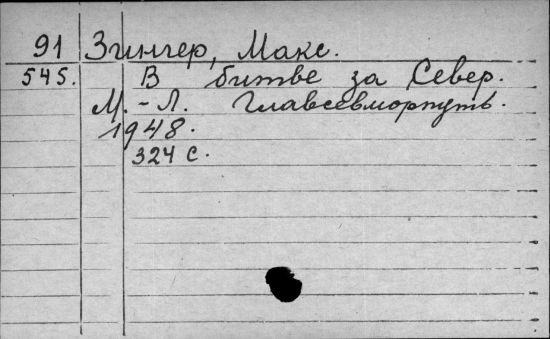 91 Зингер, Макс.
545. В битве за Север.
М.-Л. Главсевморпуть.
1948.
324 с.